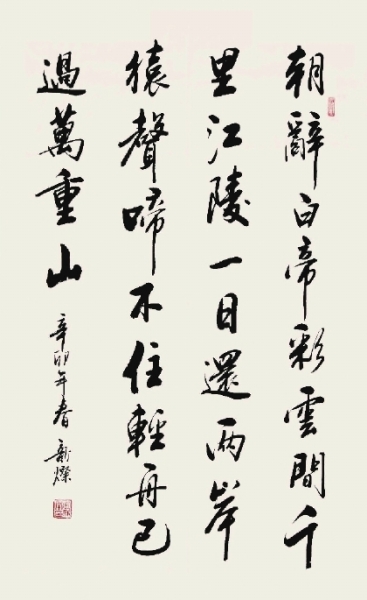 朝辭白帝彩雲間千
里江陵一日還兩岸
猿聲啼不住輕舟已
過萬重山
辛卯年春 新燦